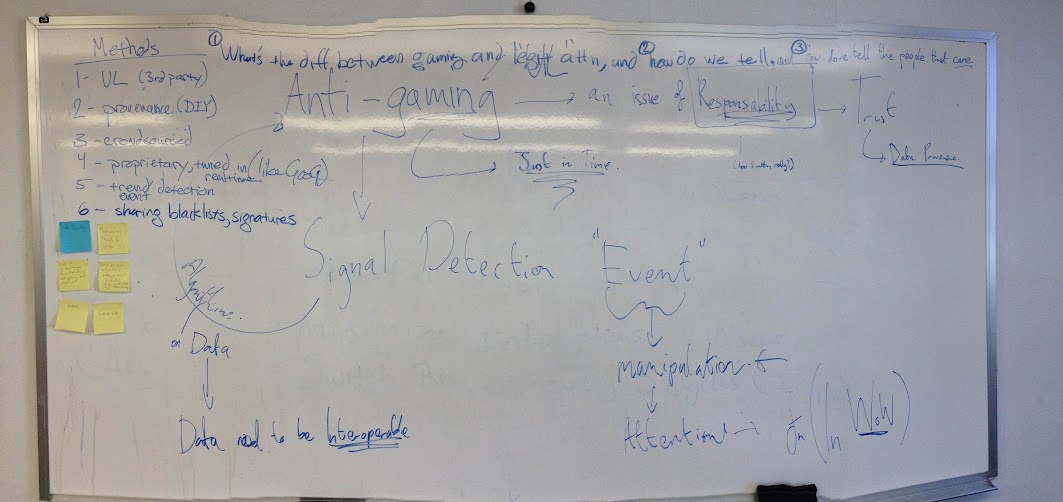 Methods
① What's the diff. between gaming and "legit" attn, and ② how do we tell, and ③ how do we tell the people that care
1- UL (3rd party)
2 - provenance (DIY)
3 - crowdsourced
4 - proprietary, tuned in (like Goog)
realtime
5 - trend detection
event
6 - sharing blacklists, signatures
Anti-gaming → an issue of Responsability → Trust
Just in Time.
Data
Signal Detection "Event"
Algorithms.
on Data
Data need to be Interoperable
manipulation
Attention →
In WoW